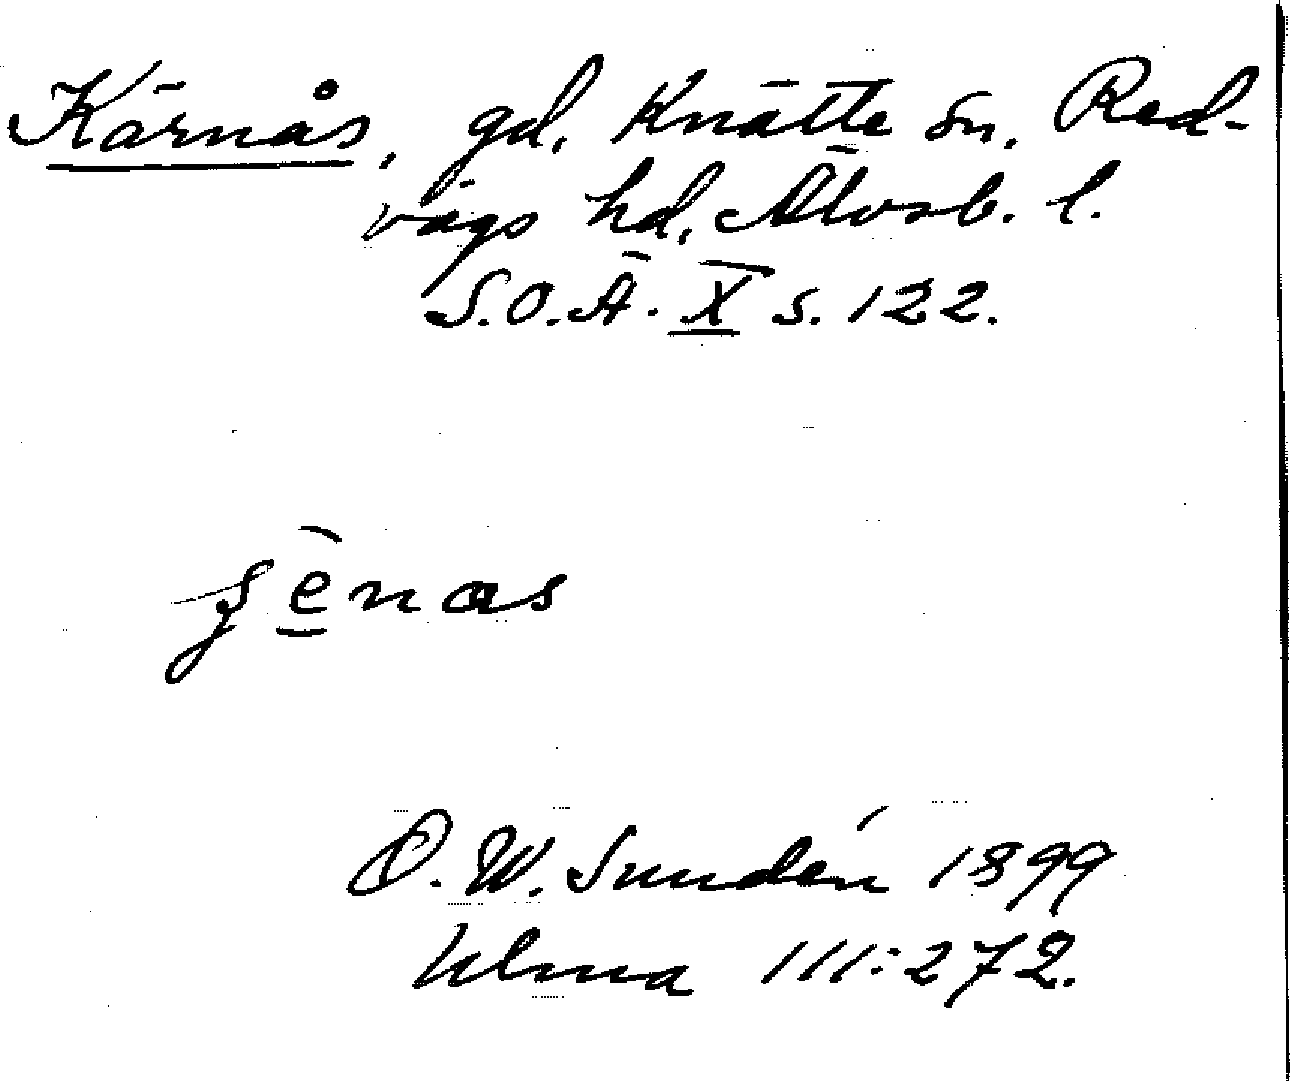 Kärnås, gd, Knätte sn, Red-
vägs hd, Älvsb. l.
S.O.Ä. X s. 122.
O. W. Sundén 1899
Ulma 111:272.